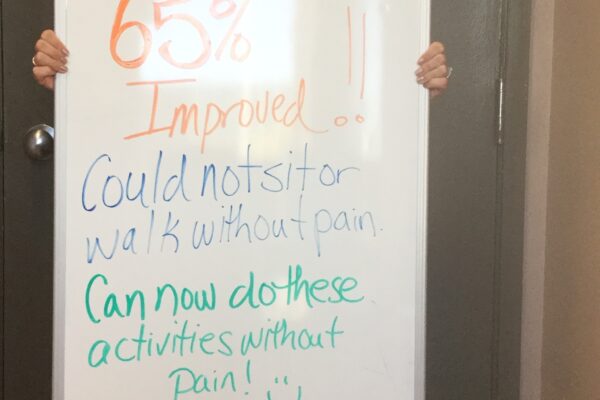 65%
Improved!!
Could not sit or
walk without pain.
Can now do these
activities without
pain! :)